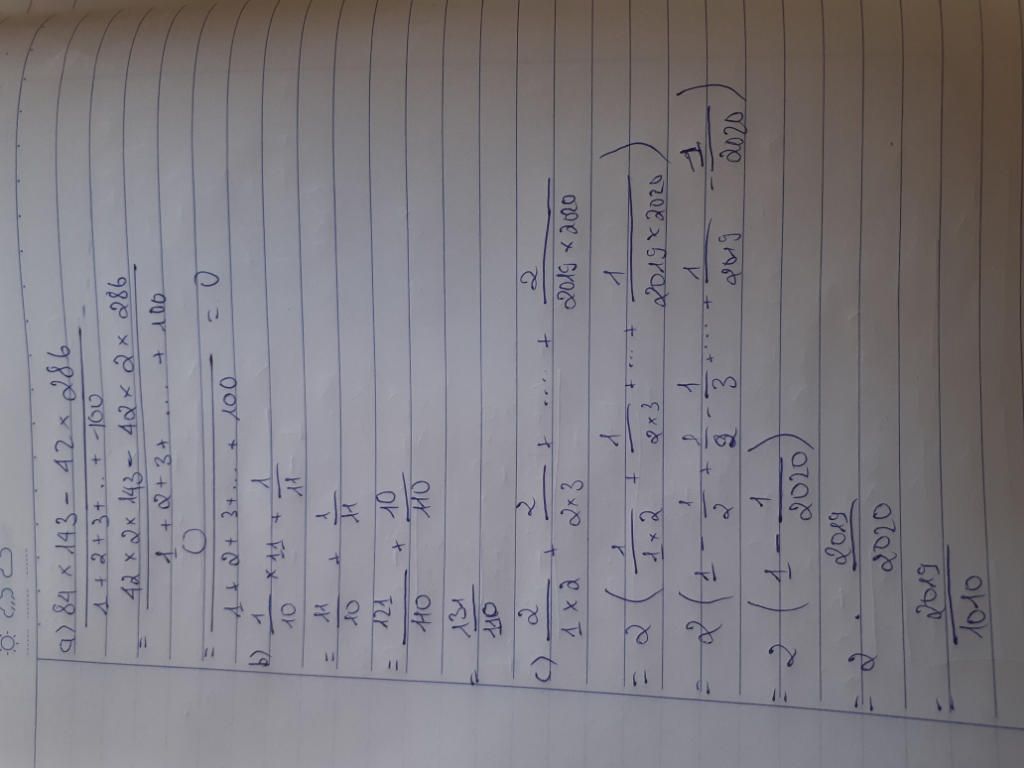 a) 84 × 143 - 42 × 286
1 + 2 + 3 + ... + 100
= 42 × 2 × 143 - 42 × 2 × 286
1 + 2 + 3 + .... + 100
= 0 = 0
1 + 2 + 3 + ... + 100
b) 1/10 × 11 + 1/11
= 11/10 + 1/11
= 121/110 + 10/110
= 131/110
c) 2/1×2 + 2/2×3 + .... + 2/2019×2020
= 2 ( 1/1×2 + 1/2×3 + ... + 1/2019×2020 )
= 2 ( 1 - 1/2 + 1/2 - 1/3 + ... + 1/2019 - 1/2020 )
= 2 ( 1 - 1/2020 )
= 2 . 2019/2020
= 2019/1010